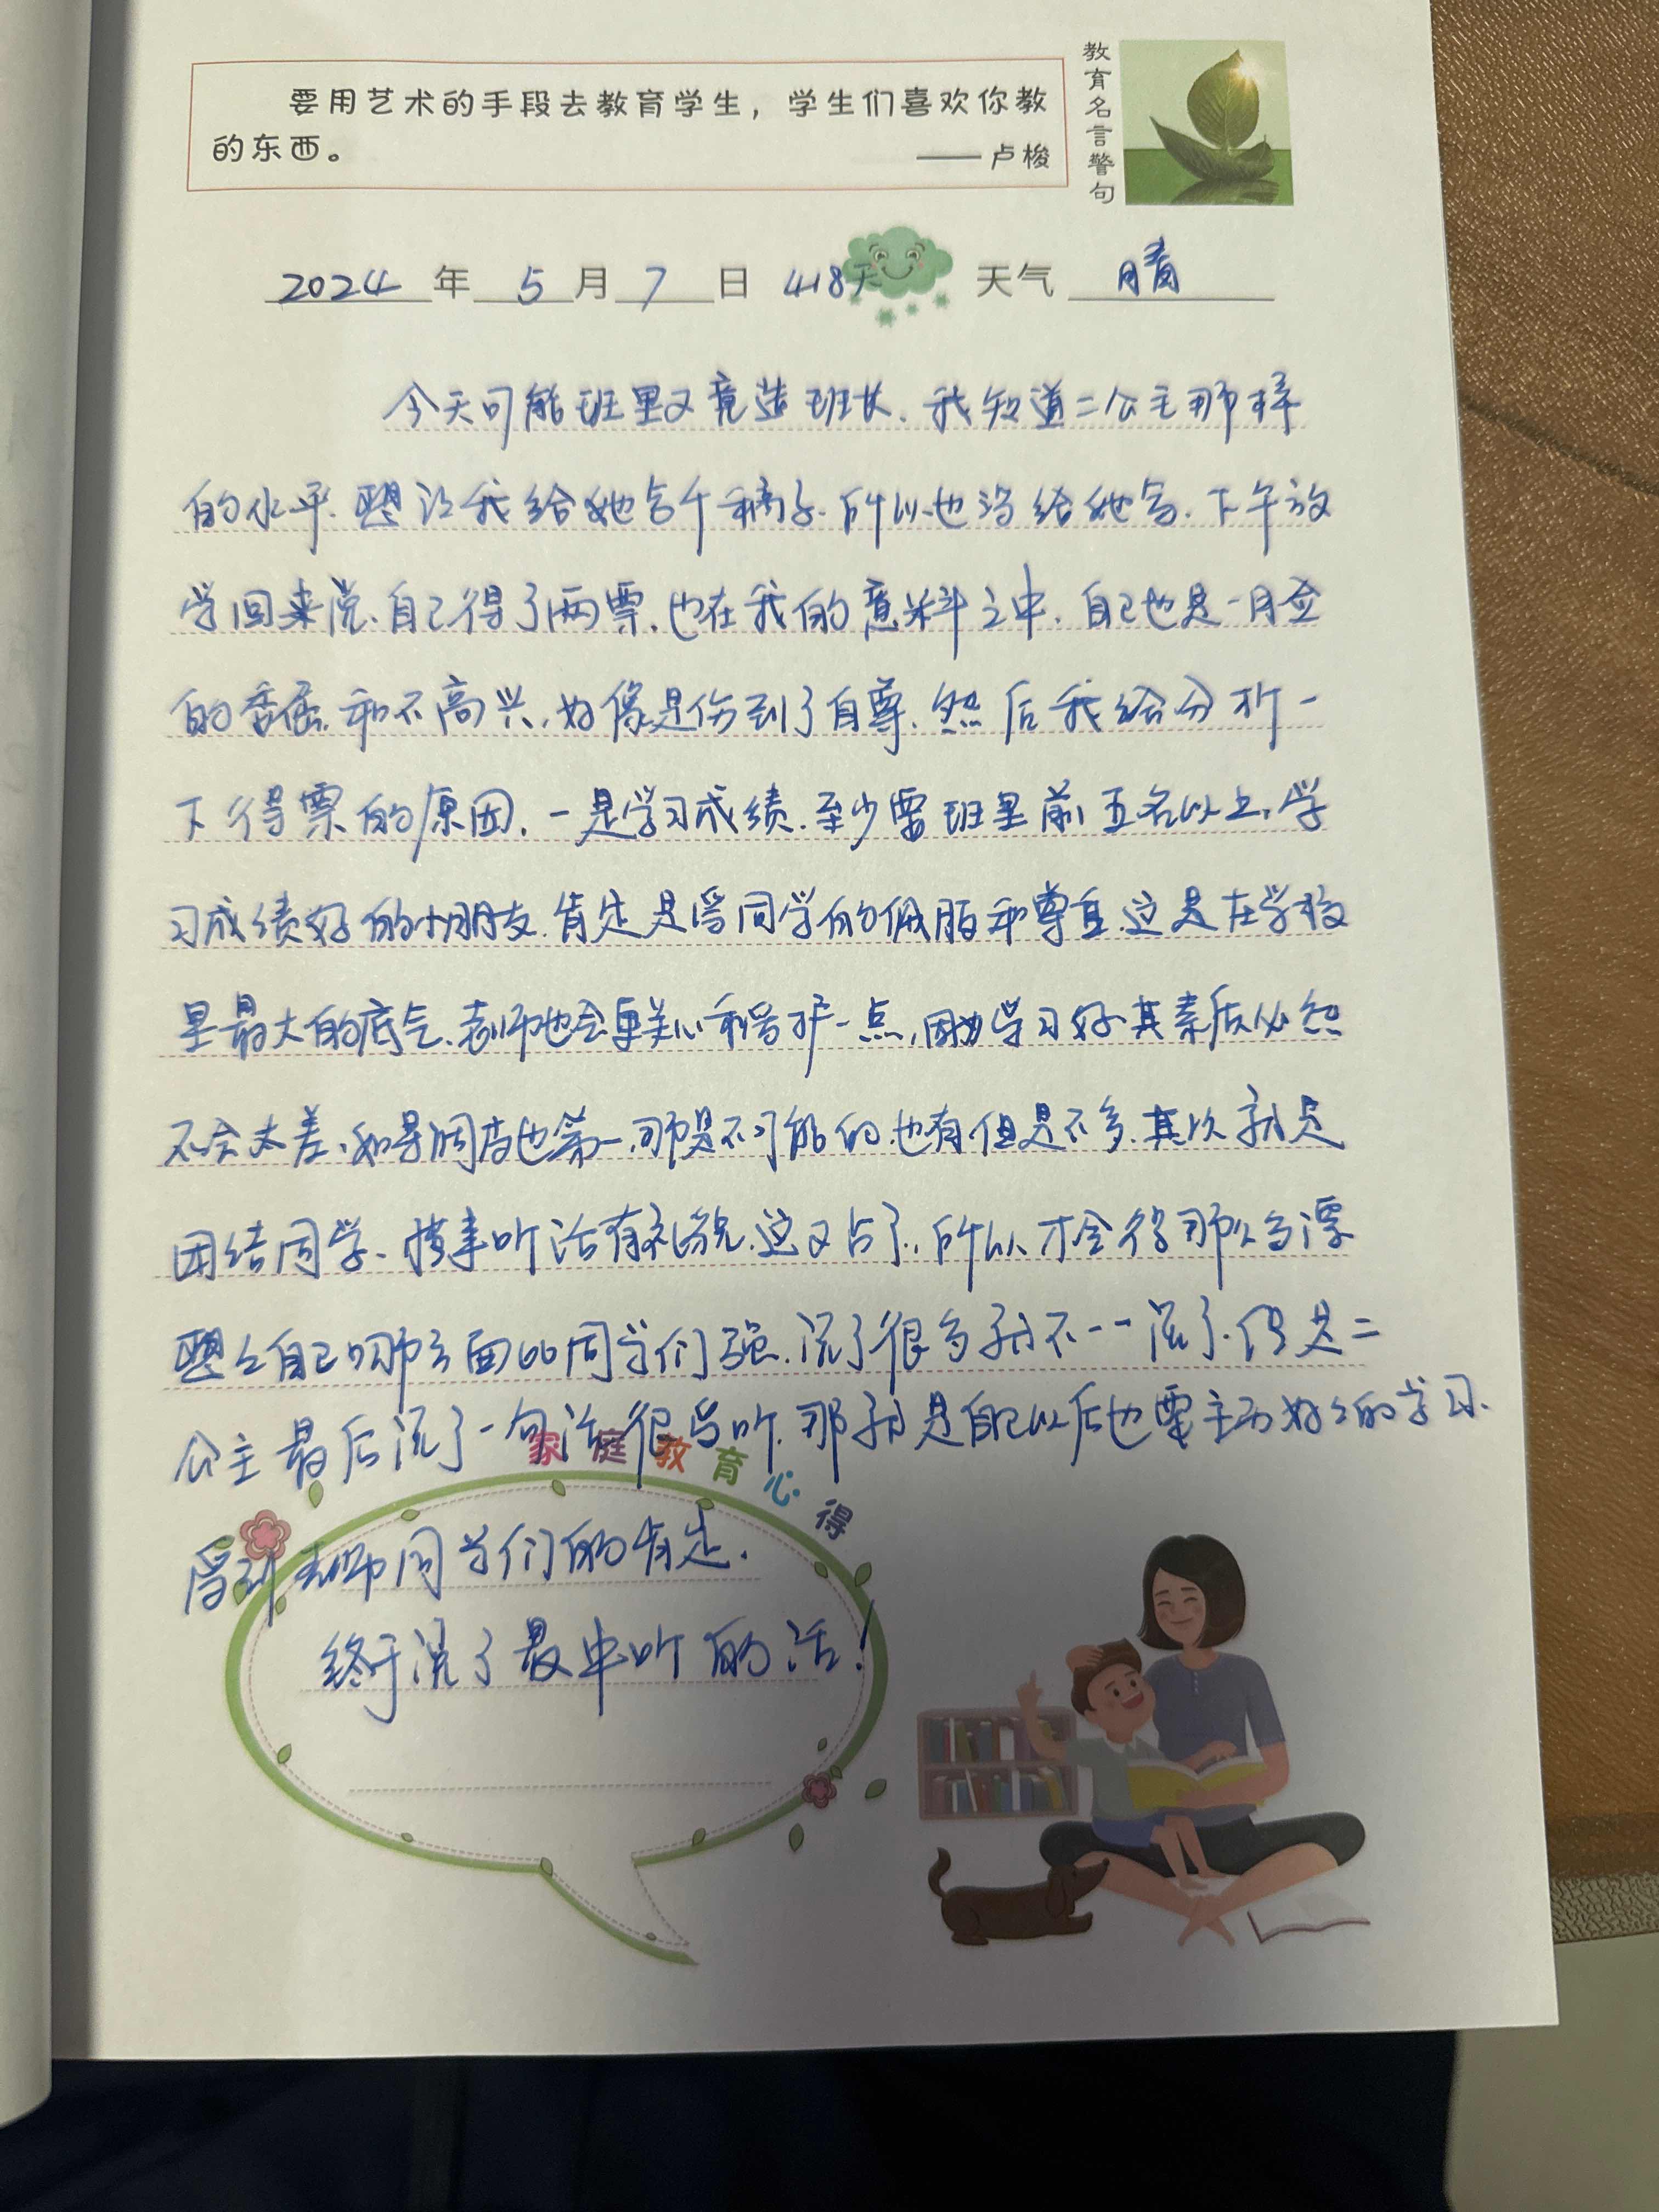 要用艺术的手段去教育学生，学生们喜欢你教
的东西。
——卢梭
教育名言警句
2024年5月7日 418天 天气 晴
今天可能班里又竞选班长.我知道二公主那样
的水平.想让我给她写个稿子.所以也没给她写.下午放
学回来说.自己得了两票.也在我的意料之中.自己也是一脸
的委屈.和不高兴.好像是伤到了自尊.然后我给分析一
下得票的原因.一是学习成绩.至少需班里前五名以上,学
习成绩好的小朋友.肯定是受同学的佩服和尊重.这是在学校
里最大的底气.老师也会更关心和爱护一点,因为学习好.其素质必然
不会太差.如果倒数也第一.那是不可能的.也有.但是不多.其次就是
团结同学、懂事听话有礼貌.这又占了.所以才会得那么多票
想想自己哪方面比同学们强.说了很多就不一一说了.但是二
公主最后说了一句话很爱听.那就是自己以后也要主动好好的学习.
家庭教育心得
受到老师同学们的肯定.
终于说了最中听的话!